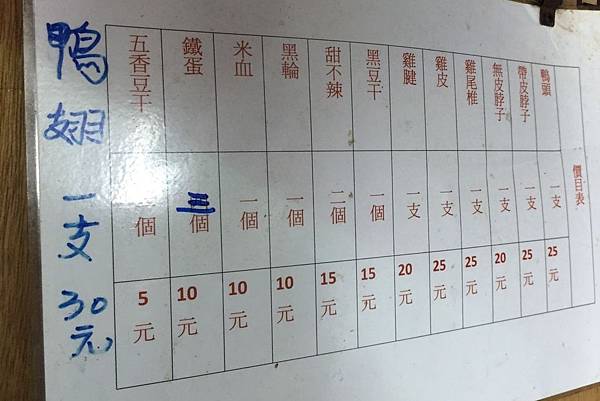 價目表
鴨頭 一支 25元
帶皮脖子 一支 25元
無皮脖子 一支 20元
雞尾椎 一支 25元
雞皮 一支 25元
雞腱 一支 20元
黑豆干 一個 15元
甜不辣 二個 15元
黑輪 一個 10元
米血 一個 10元
鐵蛋 三個 10元
五香豆干 一個 5元
鴨翅 一支 30元